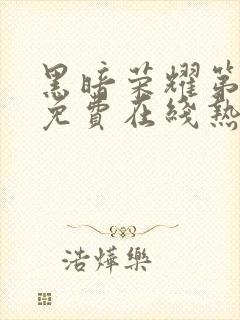 黑暗荣耀第
免費在线熱
浩燁樂